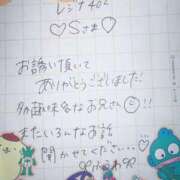 レジナ402
♡Sさま♡
お誘い頂いて
ありがとうございました!
多趣味なお兄さん☺!!
またいろんなお話
聞かせてください